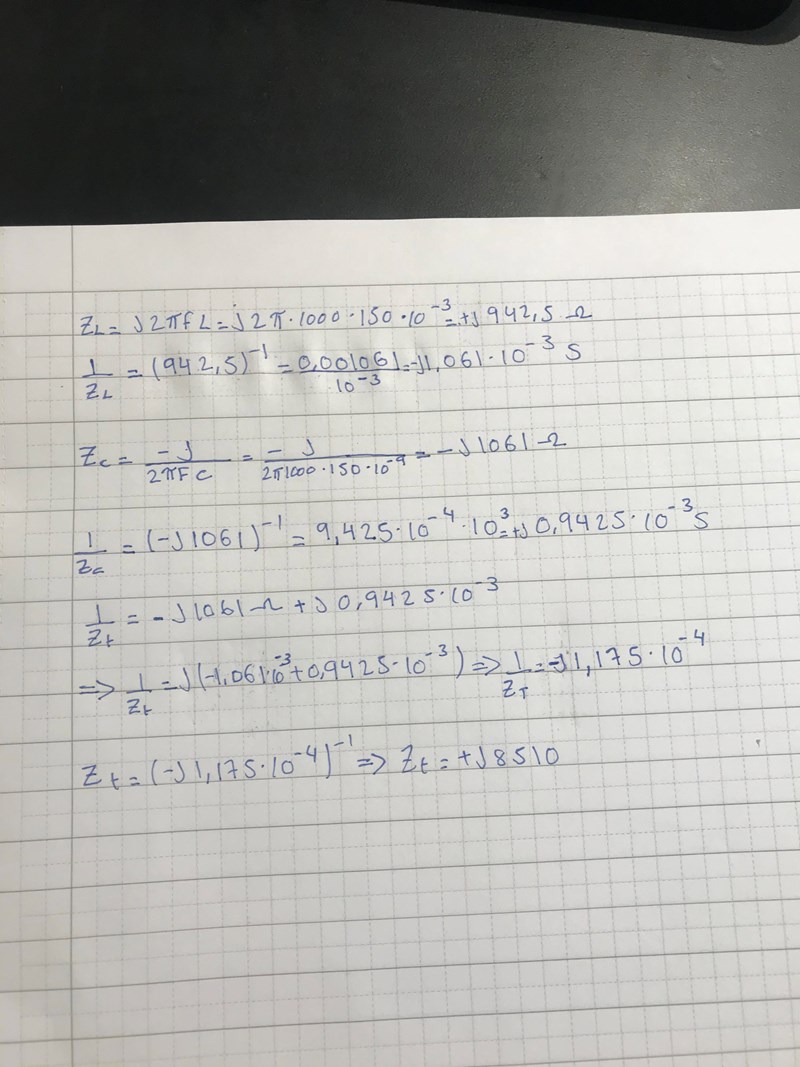 Z_L = j2πfL = j2π·1000·150·10^-3 = +j942,5 Ω
1/Z_L = (942,5)^-1 = 0,001061/10^-3 = -j1,061·10^-3 S
Z_C = -j/2πFC = -j/2π1000·150·10^-9 = -j1061 Ω
1/Z_C = (-j1061)^-1 = 9,425·10^-4·10^3 = +j0,9425·10^-3 S
1/Z_t = -j1061 Ω + j0,9425·10^-3
=> 1/Z_t = j(-1,061·10^-3 + 0,9425·10^-3) => 1/Z_T = -j1,175·10^-4
Z_t = (-j1,175·10^-4)^-1 => Z_t = +j8510